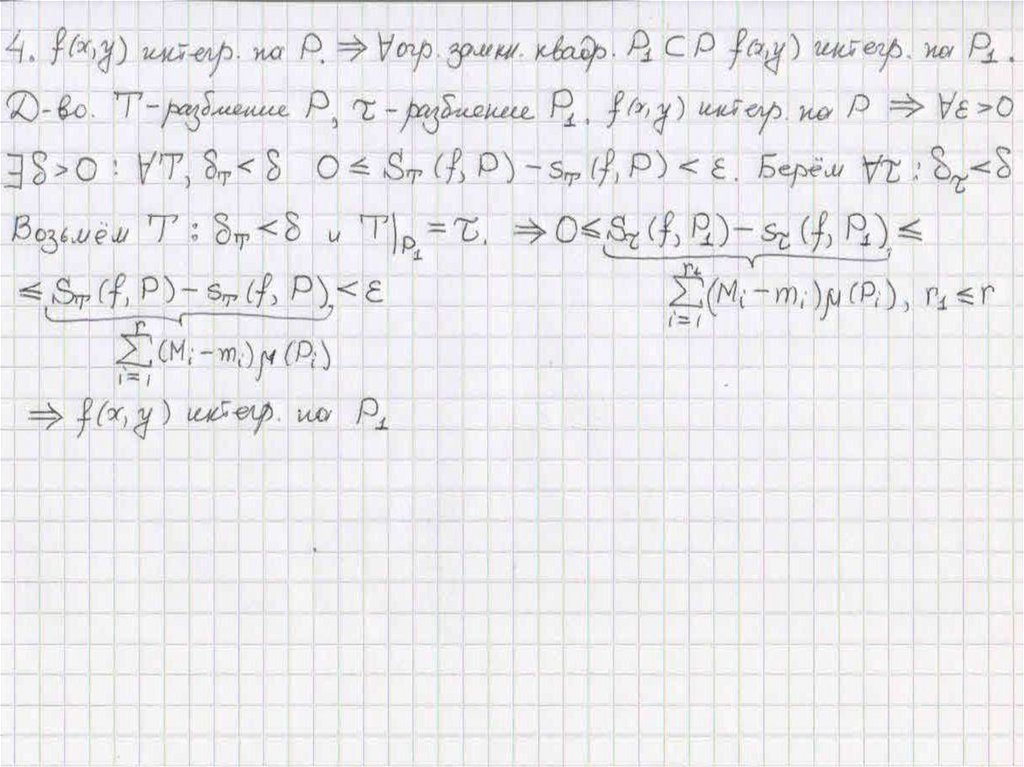 4. f(x,y) интегр. на P. ⇒ ∀ огр. замкн. квадр. P₁ ⊂ P f(x,y) интегр. на P₁.
Д-во. T-разбиение P, τ-разбиение P₁. f(x,y) интегр. на P ⇒ ∀ε>0
∃δ>0 : ∀T, δ_T<δ 0 ≤ S_T(f,P) − s_T(f,P) < ε. Берём ∀τ : δ_τ<δ
Возьмём T : δ_T<δ и T|_P₁ = τ. ⇒ 0 ≤ S_τ(f,P₁) − s_τ(f,P₁) ≤
≤ S_T(f,P) − s_T(f,P) < ε
∑_{i=1}^{r₁} (M_i − m_i) μ(P_i), r₁ ≤ r
∑_{i=1}^{r} (M_i − m_i) μ(P_i)
⇒ f(x,y) интегр. на P₁